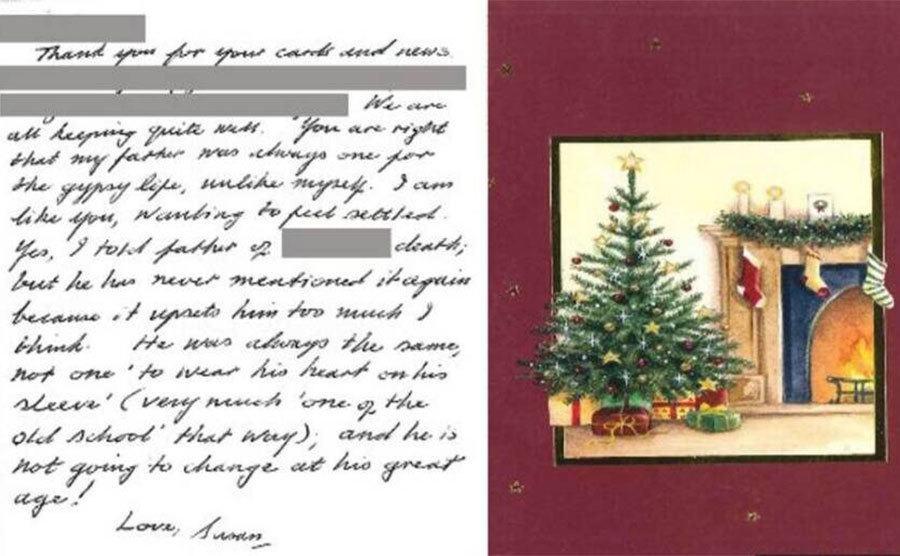 Thank you for your cards and news.
We are
all keeping quite well. You are right
that my father was always one for
the gypsy life, unlike myself. I am
like you, wanting to feel settled.
Yes, I told father of death;
but he has never mentioned it again
because it upsets him too much I
think. He was always the same,
not one 'to wear his heart on his
sleeve' (very much 'one of the
old school' that way); and he is
not going to change at his great
age!
Love, Susan